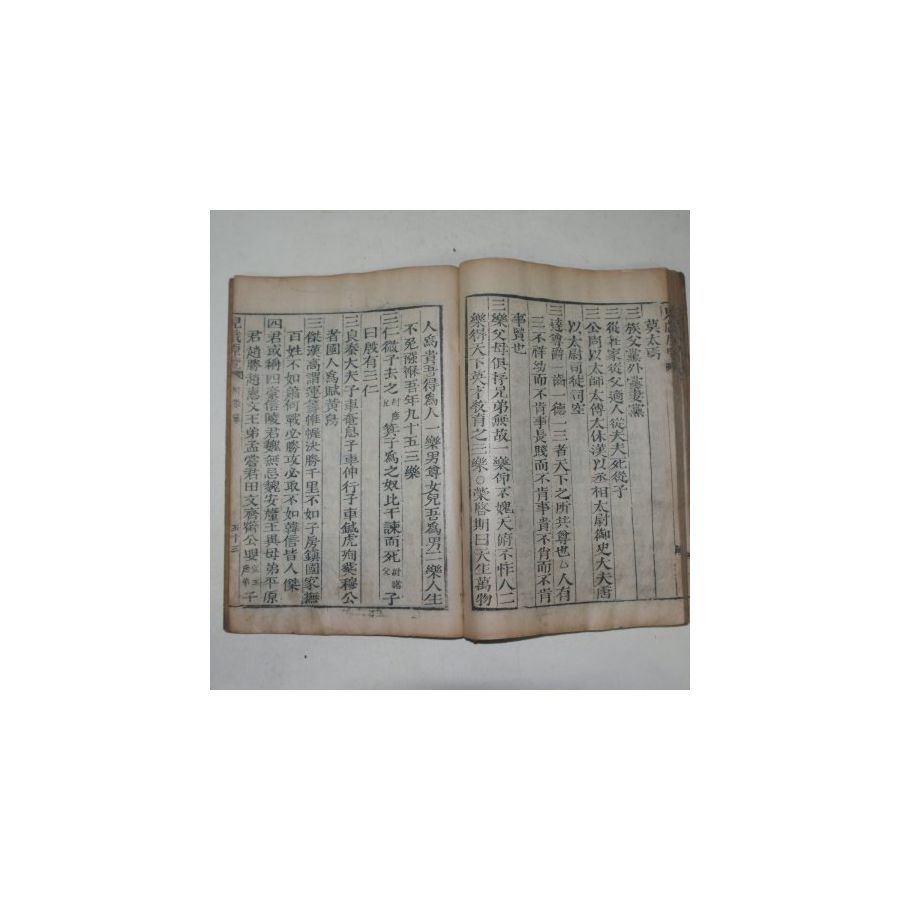 莫大焉
三族父黨外黨妻黨
三從在家從父適人從夫夫死從子
三公周以太師太傅太保漢以丞相太尉御史大夫唐
以太尉司徒司空
三達尊爵一齒一德一三者天下之所共尊也 人有
三不祥幼而不肯事長賤而不肯事貴不肖而不肯
事賢也
三樂父母俱存兄弟無故一樂仰不愧天俯不怍人二
樂得天下英才敎育之三樂○榮啓期曰天生萬物
人爲貴吾得爲人一樂男尊女卑吾爲男二樂人生
不免襁褓吾年九十五三樂
三仁微子去之 箕子爲之奴比干諫而死 子
曰殷有三仁
三良秦大夫子車奄息子車仲行子車鍼虎殉葬穆公
者國人爲賦黃鳥
三傑漢高謂運籌帷幄決勝千里不如子房鎭國家撫
百姓不如蕭何戰必勝攻必取不如韓信皆人傑
四君或稱四豪信陵君魏無忌魏安釐王異母弟平原
君趙勝趙惠文王弟孟嘗君田文齊 公 子